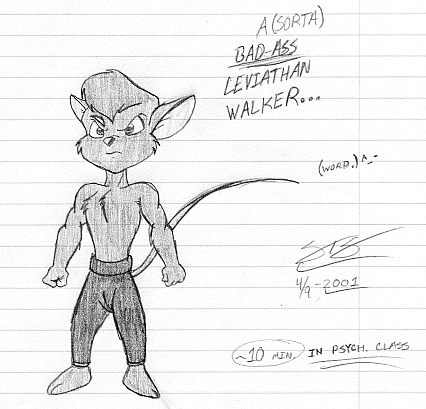 A (SORTA)
BAD-ASS
LEVIATHAN
WALKER...
(WORD.) ^_-
4/9-2001
~10 MIN. IN PSYCH. CLASS